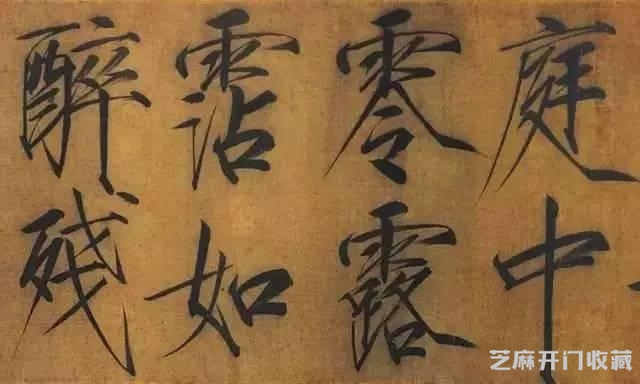 庭中
零露
霑如
醉殘
芝麻开门收藏